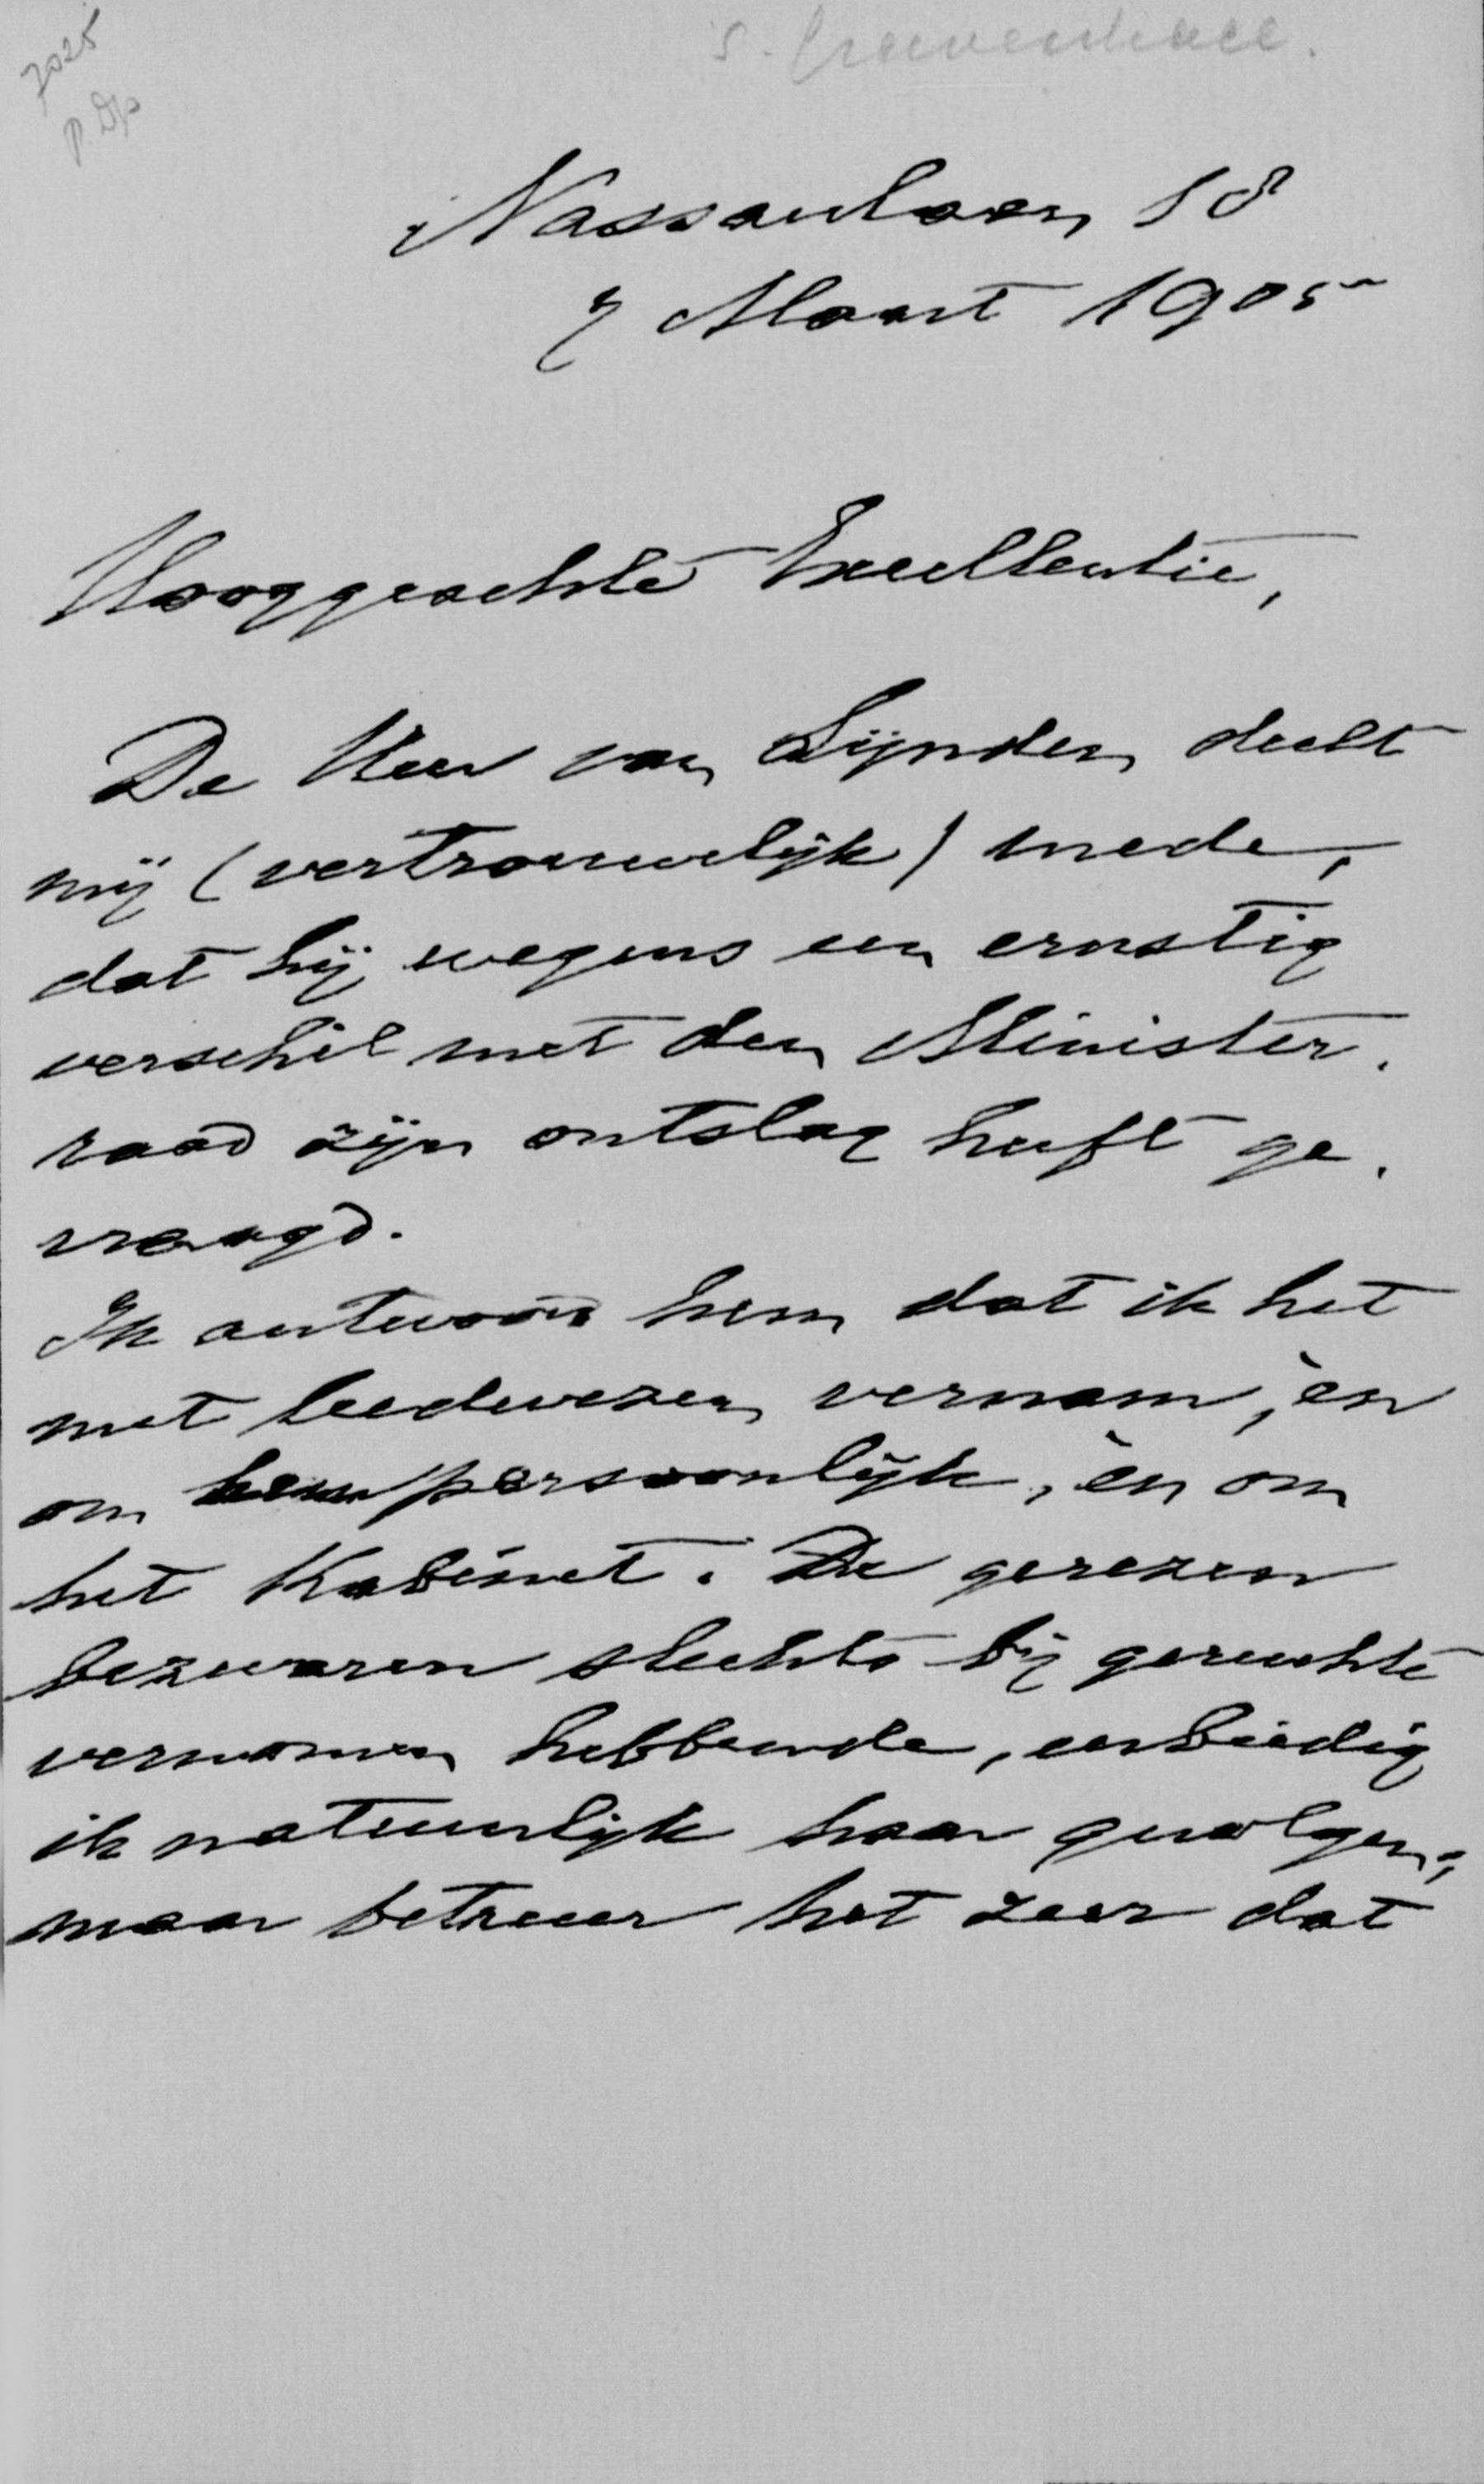 7025
P. Dp
's-Gravenhage.
Nassaulaan 18
7 Maart 1905
Hooggeachte Excellentie,
De Heer van Lijnden deelt
mij (vertrouwelijk) mede,
dat hij wegens een ernstig
verschil met den Minister-
raad zijn ontslag heeft ge-
vraagd.
Ik antwoord hem dat ik het
met leedwezen vernam, èn
om hem persoonlijk, èn om
het Kabinet. De gerezen
bezwaren slechts bij geruchte
vernomen hebbende, eerbiedig
ik natuurlijk haar gevolgen;
maar betreur het zeer dat